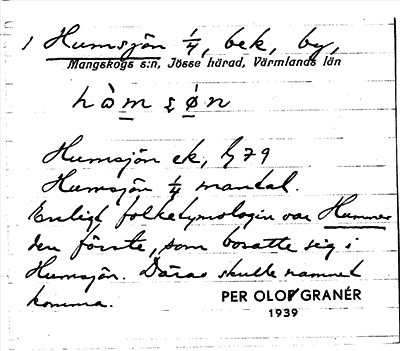 1 Humsjön 1/4, bek, by,
Mangskogs s:n, Jösse härad, Värmlands län
hòm ʂø̀n
Humsjön ek, G 79
Humsjön 1/4 mantal.
Enligt folketymologin var Hummer
den förste, som bosatte sig i
Humsjön. Därav skulle namnet
komma.
PER OLOF GRANÉR
1939